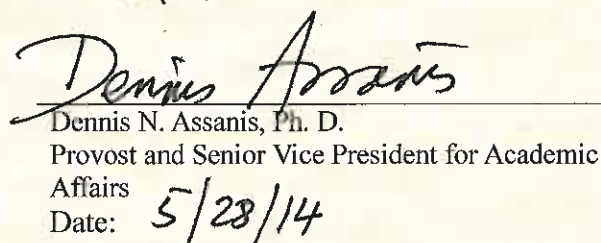 Dennis Assanis
Dennis N. Assanis, Ph. D.
Provost and Senior Vice President for Academic
Affairs
Date: 5/28/14